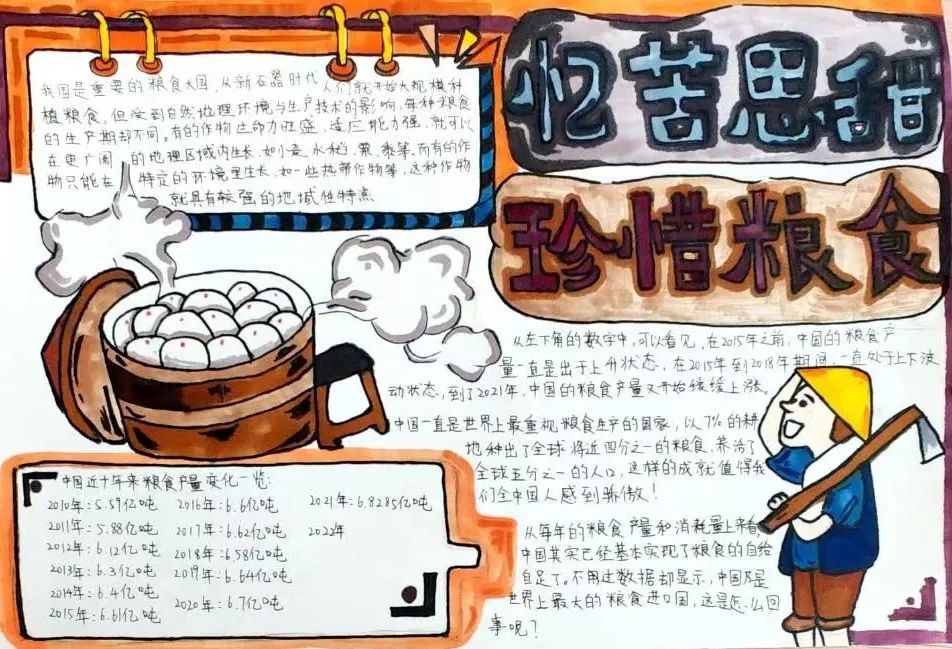 忆苦思甜
珍惜粮食
我国是重要的粮食大国，从新石器时代，人们就开始大规模种
植粮食，但受到自然地理环境与生产技术的影响，每种粮食
的生产期却不同。有的作物生命力旺盛，适应能力强，就可以
在更广阔的地理区域内生长，如小麦，水稻，粟，黍等。而有的作
物只能在特定的环境里生长，如一些热带作物等，这种作物
就具有较强的地域性特点
从左下角的数字中，可以看见，在2015年之前，中国的粮食产
量一直是出于上升状态，在2015年到2018年期间，一直处于上下波
动状态，到了2021年，中国的粮食产量又开始缓缓上涨。
中国一直是世界上最重视粮食生产的国家，以7%的耕
地种出了全球将近四分之一的粮食，养活了
全球五分之一的人口，这样的成就值得我
们全中国人感到骄傲！
从每年的粮食产量和消耗量上来看，
中国其实已经基本实现了粮食的自给
自足了。不用过数据却显示，中国乃是
世界上最大的粮食进口国，这是怎么回
事呢？
中国近十年来粮食产量变化一览：
2010年：5.59亿吨
2011年：5.88亿吨
2012年：6.12亿吨
2013年：6.3亿吨
2014年：6.4亿吨
2015年：6.61亿吨
2016年：6.6亿吨
2017年：6.62亿吨
2018年：6.58亿吨
2019年：6.64亿吨
2020年：6.7亿吨
2021年：6.8285亿吨
2022年